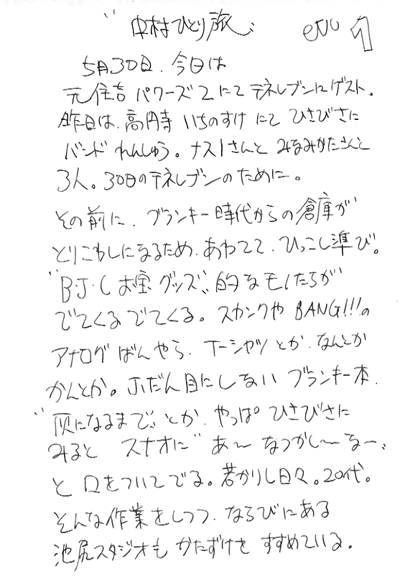 "中村ひとり旅" etc 1
5月30日. 今日は
元住吉 パワーズ2にて テネレブンにゲスト.
昨日は. 高円寺 いちのすけ にて ひさびさに
バンド れんしゅう。ナス1さんと みなみかたさんと
3人。30日のテネレブンのために。
その前に. ブランキー時代からの倉庫が
とりこわしになるため. あわてて. ひっこし準び。
"B・J・Cお宝グッズ"的なモノたちが
でてくるでてくる。スカンクや BANG!!!の
アナログばんやら. T-シャツとか. なんとか
かんとか。ふだん目にしない ブランキー本.
"灰になるまで"とか. やっぱ ひさびさに
みると スナオに"あ〜 なつかし〜なー"
と 口をついてでる。若かりし日々。20代。
そんな作業をしつつ. ならびにある
池尻スタジオも かたずけを すすめている。